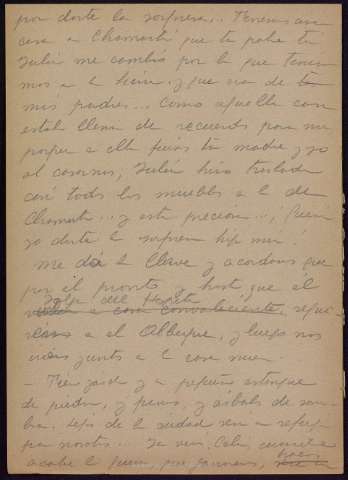 por darte la sorpresa... Tenemos una
casa en Chamartín que te
Julián me cambió por la que tenía
mos a la y que era de
mis padres... Como aquella casa
estaba llena de recuerdos para mí
porque a ella fuimos tu madre y yo
al casarnos, Julián hizo trasladar
casi todos los muebles a la de
Chamartín... y está preciosa... ¡Quería
yo darte la sorpresa hija mía!
Me dio la llave y acordamos que
por el pronto y hasta que el
golpe del Hospital
a casa convaleciente,
a el Albergue, y luego nos
juntos a la casa nueva.
— Tiene jardín y un pequeño estanque
de piedra, y pinos, y árboles de som
bra. Lejos de la ciudad será un refugio
para nosotros... Ya verás, Celia, cuando
acabe la guerra, que ganaremos,